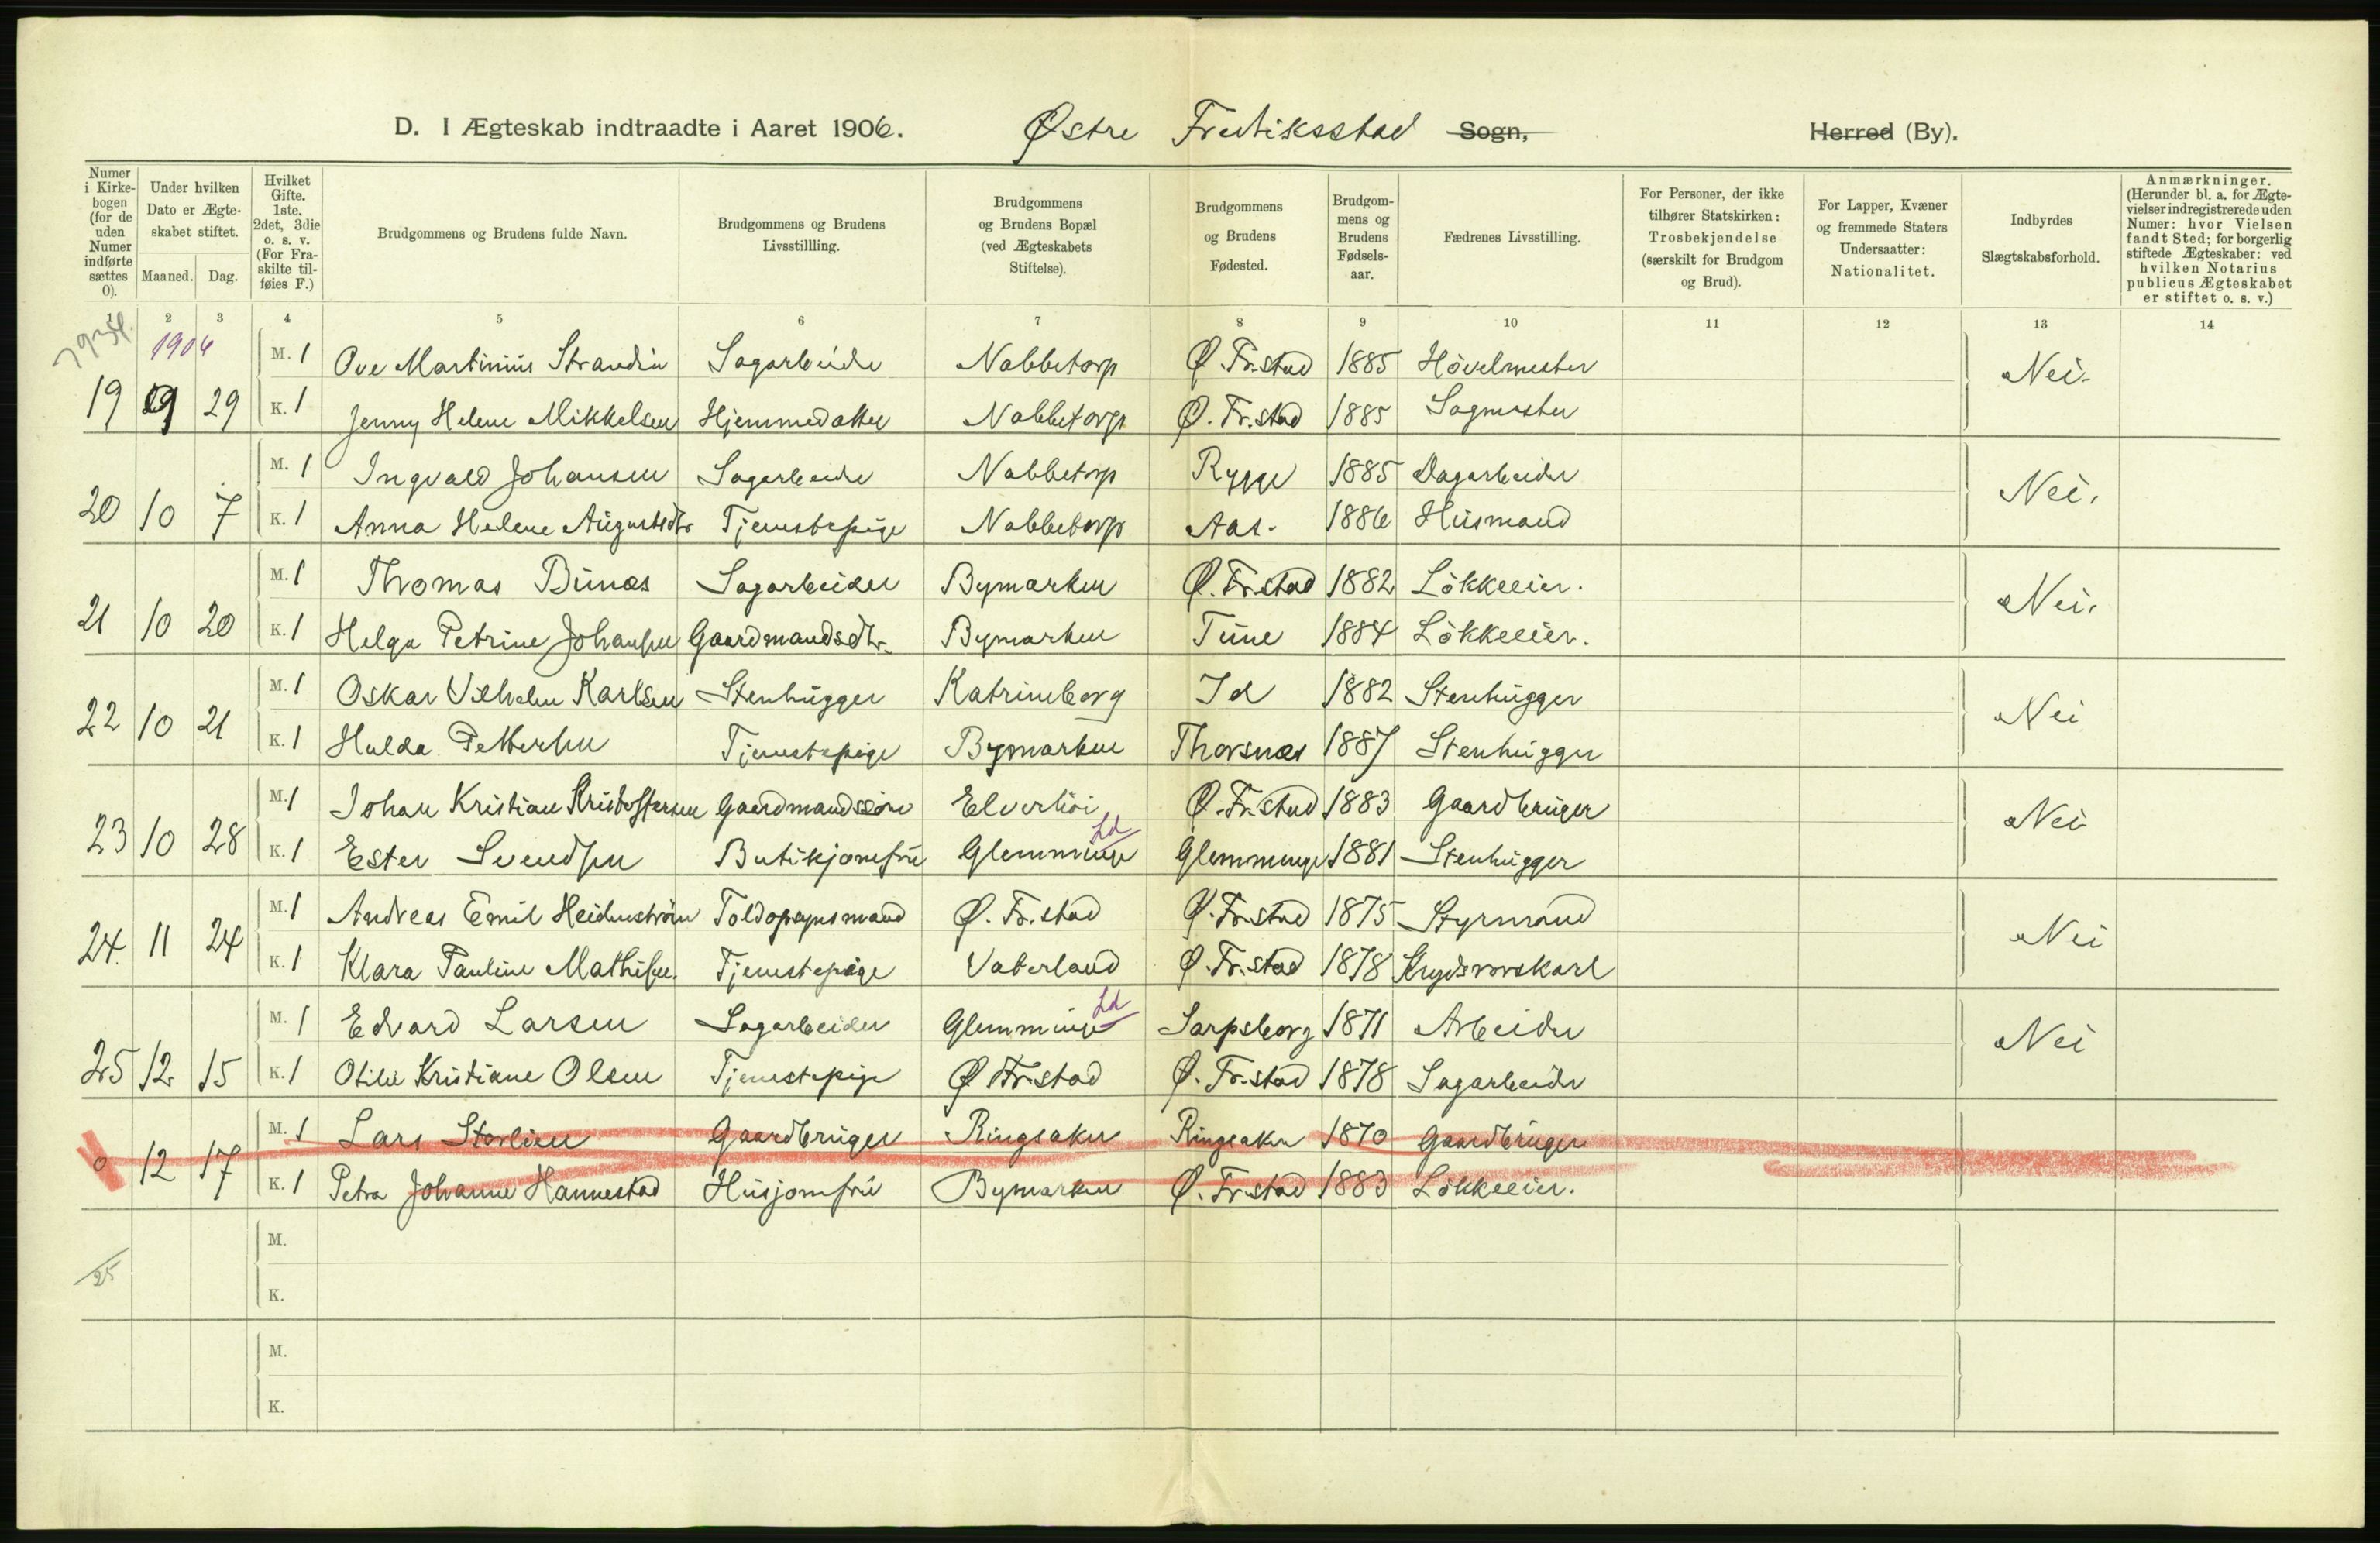 D. I Ægteskab indtraadte i Aaret 1906. Østre Fredriksstad Sogn, Herred (By).
Numer i Kirkebogen (for de uden Numer indførte sættes 0).
Under hvilken Dato er Ægteskabet stiftet.
Maaned. Dag.
Hvilket Gifte. 1ste, 2det, 3die o. s. v. (For Fraskilte tilføies F.)
Brudgommens og Brudens fulde Navn.
Brudgommens og Brudens Livsstillling.
Brudgommens og Brudens Bopæl (ved Ægteskabets Stiftelse).
Brudgommens og Brudens Fødested.
Brudgommens og Brudens Fødselsaar.
Fædrenes Livsstilling.
For Personer, der ikke tilhører Statskirken: Trosbekjendelse (særskilt for Brudgom og Brud).
For Lapper, Kvæner og fremmede Staters Undersaatter: Nationalitet.
Indbyrdes Slægtskabsforhold.
Anmærkninger. (Herunder bl. a. for Ægtevielser indregistrerede uden Numer: hvor Vielsen fandt Sted; for borgerlig stiftede Ægteskaber: ved hvilken Notarius publicus Ægteskabet er stiftet o. s. v.)
1 2 3 4 5 6 7 8 9 10 11 12 13 14
1906
M. 1 Ove Martinius Strandin Sagarbeide Nabbetorp Ø. Fr.stad 1885 Høvelmester Nei.
19 9 29 K. 1 Jenny Helene Mikkelsen Hjemmedatter Nabbetorp Ø. Fr.stad 1885 Sagmester
M. 1 Ingvald Johansen Sagarbeide Nabbetorp Rygge 1885 Dagarbeider Nei.
20 10 7 K. 1 Anna Helene Augustsdtr Tjenestepige Nabbetorp Aas. 1886 Husmand
M. 1 Thomas Bunæs Sagarbeider Bymarken Ø. Fr.stad 1882 Løkkeeier. Nei.
21 10 20 K. 1 Helga Petrine Johansen Gaardmandsdtr. Bymarken Tune 1884 Løkkeeier.
M. 1 Oskar Vilhelm Karlsen Stenhugger Katrineborg Id 1882 Stenhugger Nei
22 10 21 K. 1 Hulda Pettersen Tjenestepige Bymarken Thorsnæs 1887 Stenhugger
M. 1 Johan Kristian Kristoffersen Gaardmandssøn Elverhøi Ø. Fr.stad 1883 Gaardbruger Nei
23 10 28 K. 1 Ester Svendsen Butikjomfru Glemminge Ld Glemminge 1881 Stenhugger
M. 1 Andreas Emil Heidenstrøm Toldopsynsmand Ø. Fr.stad Ø. Fr.stad 1875 Styrmand Nei
24. 11 24 K. 1 Klara Pauline Mathisen. Tjenestepige Vaterland Ø. Fr.stad 1878 Krydsrorskarl
M. 1 Edvard Larsen Sagarbeider Glemminge Ld Sarpsborg 1871 Arbeider Nei
25 12 15 K. 1 Otilie Kristiane Olsen Tjenestepige Ø Fr.stad Ø. Fr.stad 1878 Sagarbeider
M. 1 Lars Storlien Gaardbruger Ringsaker Ringsaker 1870 Gaardbruger
0 12 17 K. 1 Petra Johanne Hannestad Husjomfru Bymarken Ø. Fr.stad 1883 Løkkeeier.
M.
25
K.
M.
K.